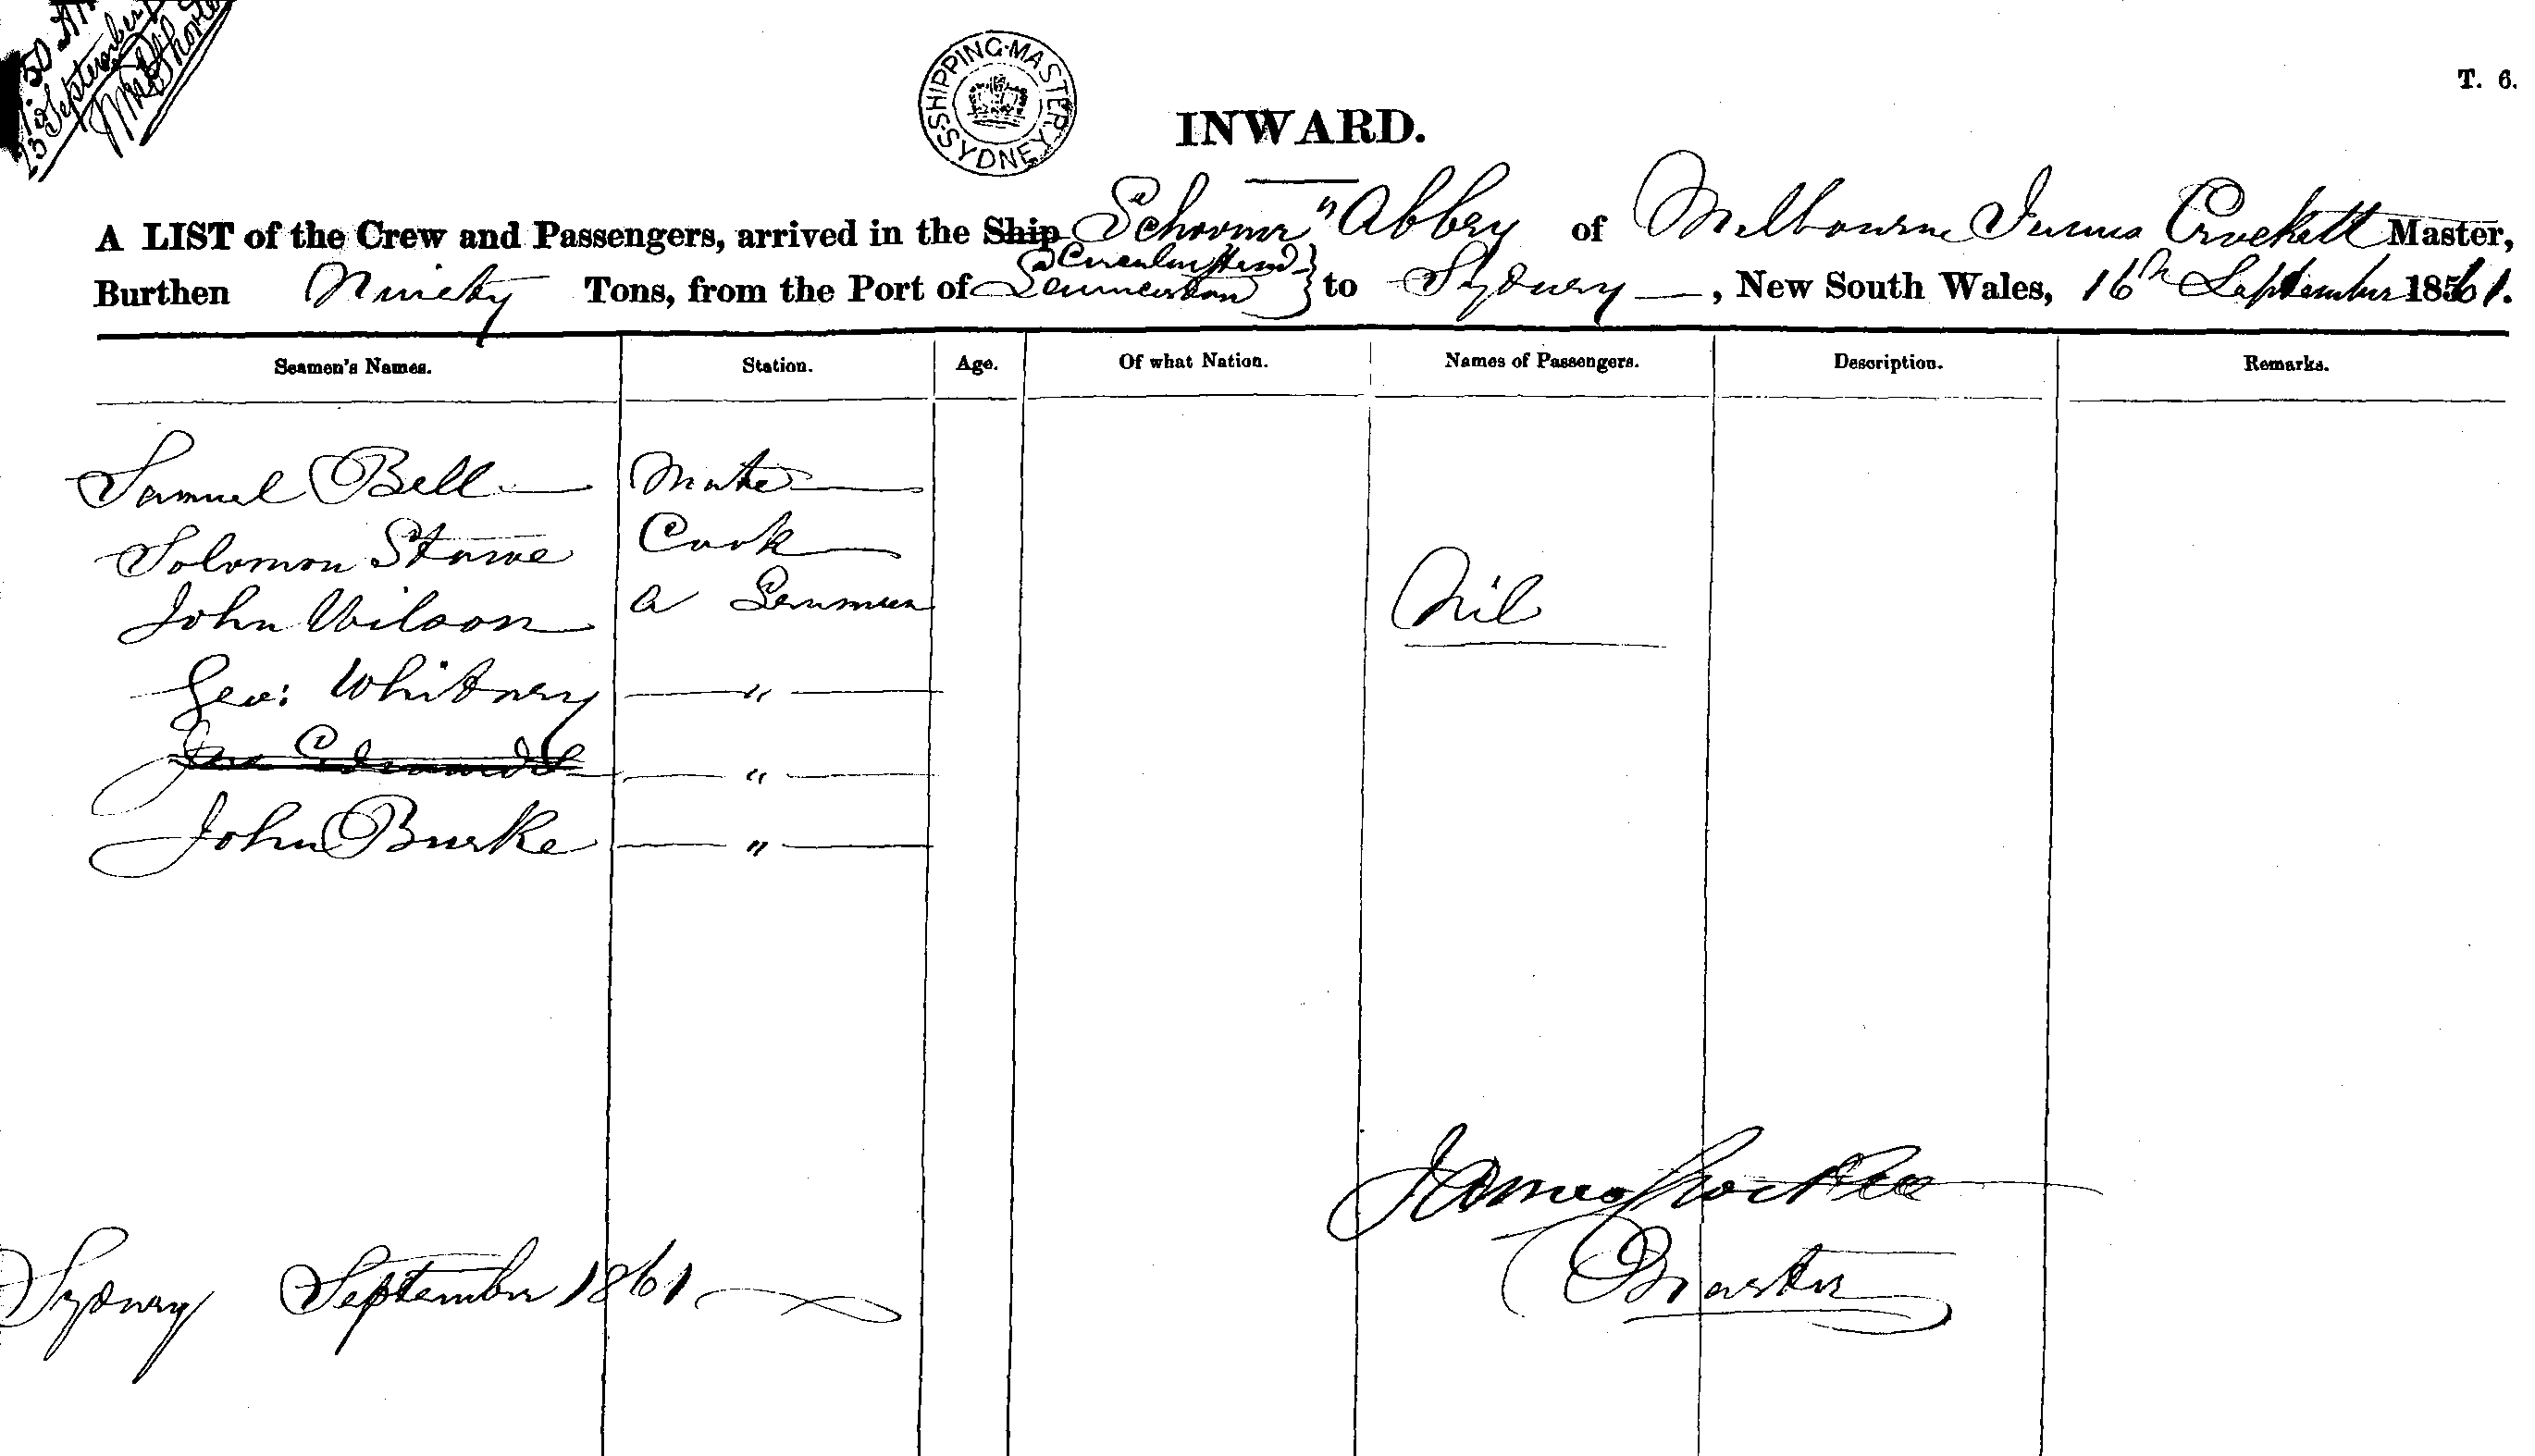 1.50
23 September
SHIPPING·MASTER
SYDNEY
T. 6.
INWARD.
A LIST of the Crew and Passengers, arrived in the Ship Schooner "Abbey of Melbourne James Crockett Master,
Circular Head
Burthen Ninety Tons, from the Port of Launceston } to Sydney, New South Wales, 16th September 1861.
Seamen's Names. Station. Age. Of what Nation. Names of Passengers. Description. Remarks.
Samuel Bell Mate
Solomon Stowe Cook
John Wilson a Seaman Nil
Geo: Whitney "
Edwards "
John Burke "
James Crockett
Master
Sydney September 1861